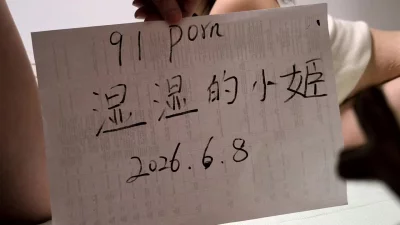 91 porn
湿湿的小姬
2026.6.8